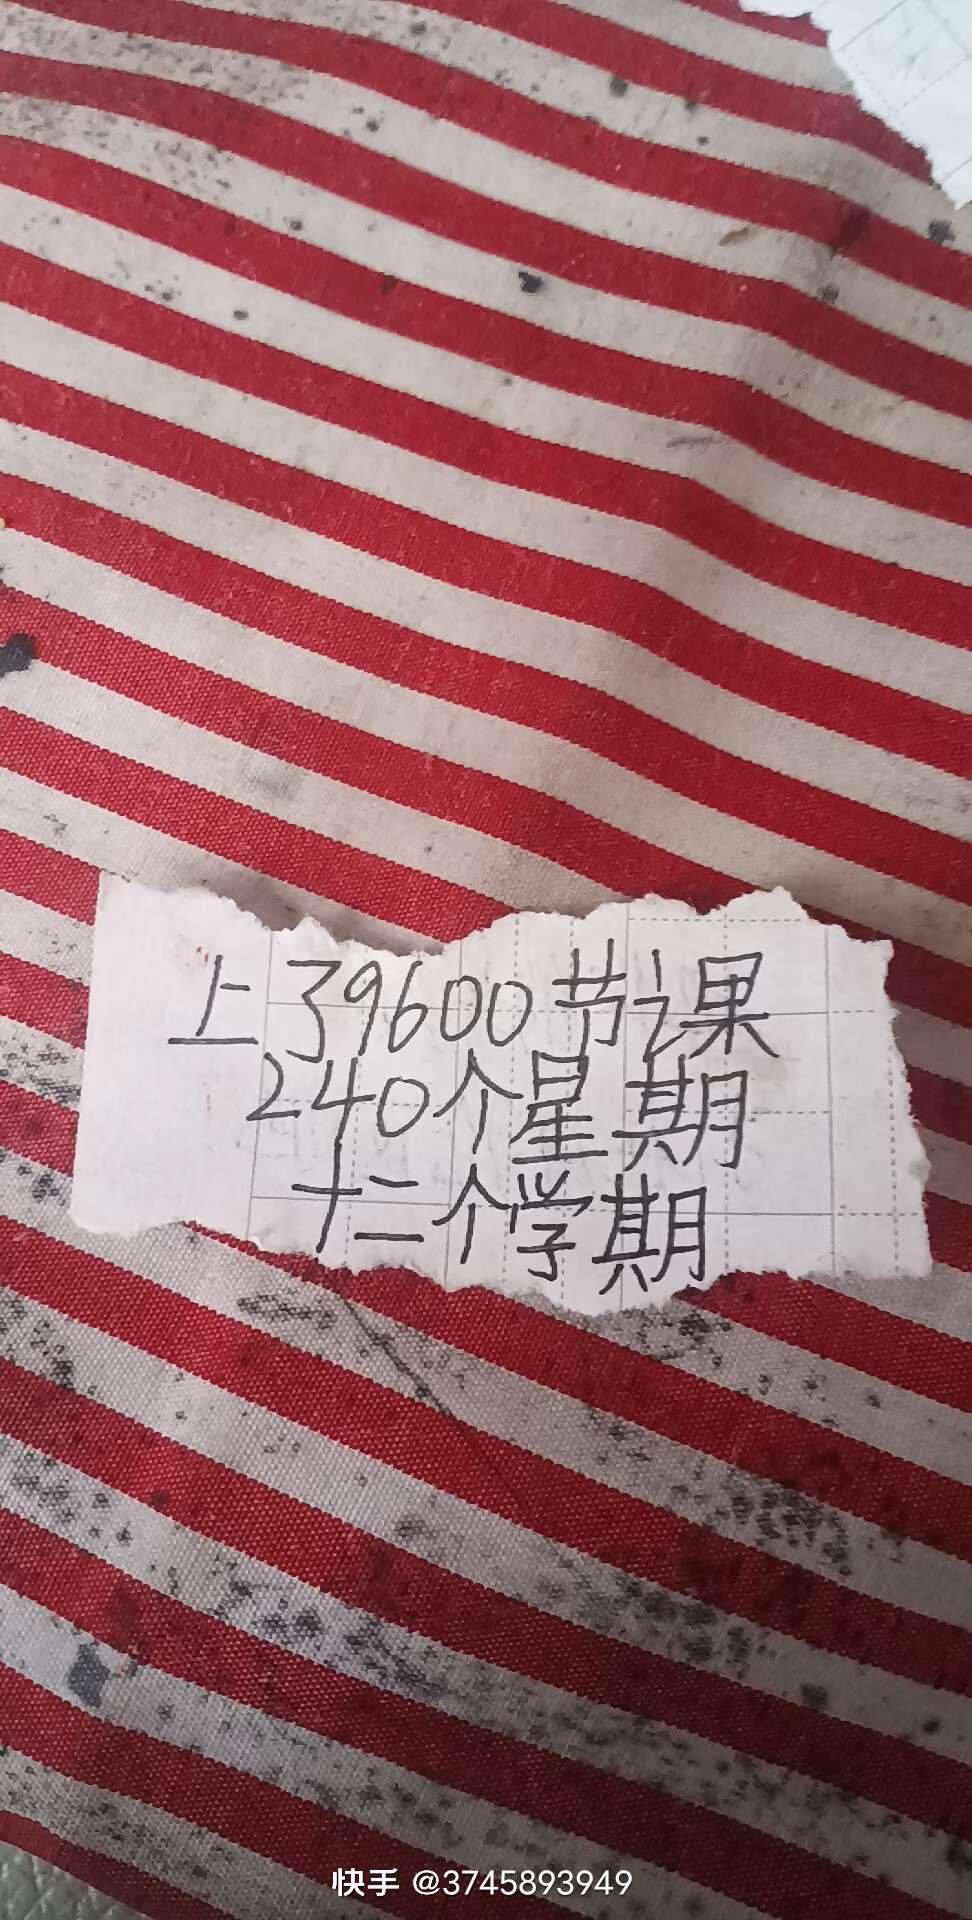 上39600节课
240个星期
十二个学期
快手 @3745893949